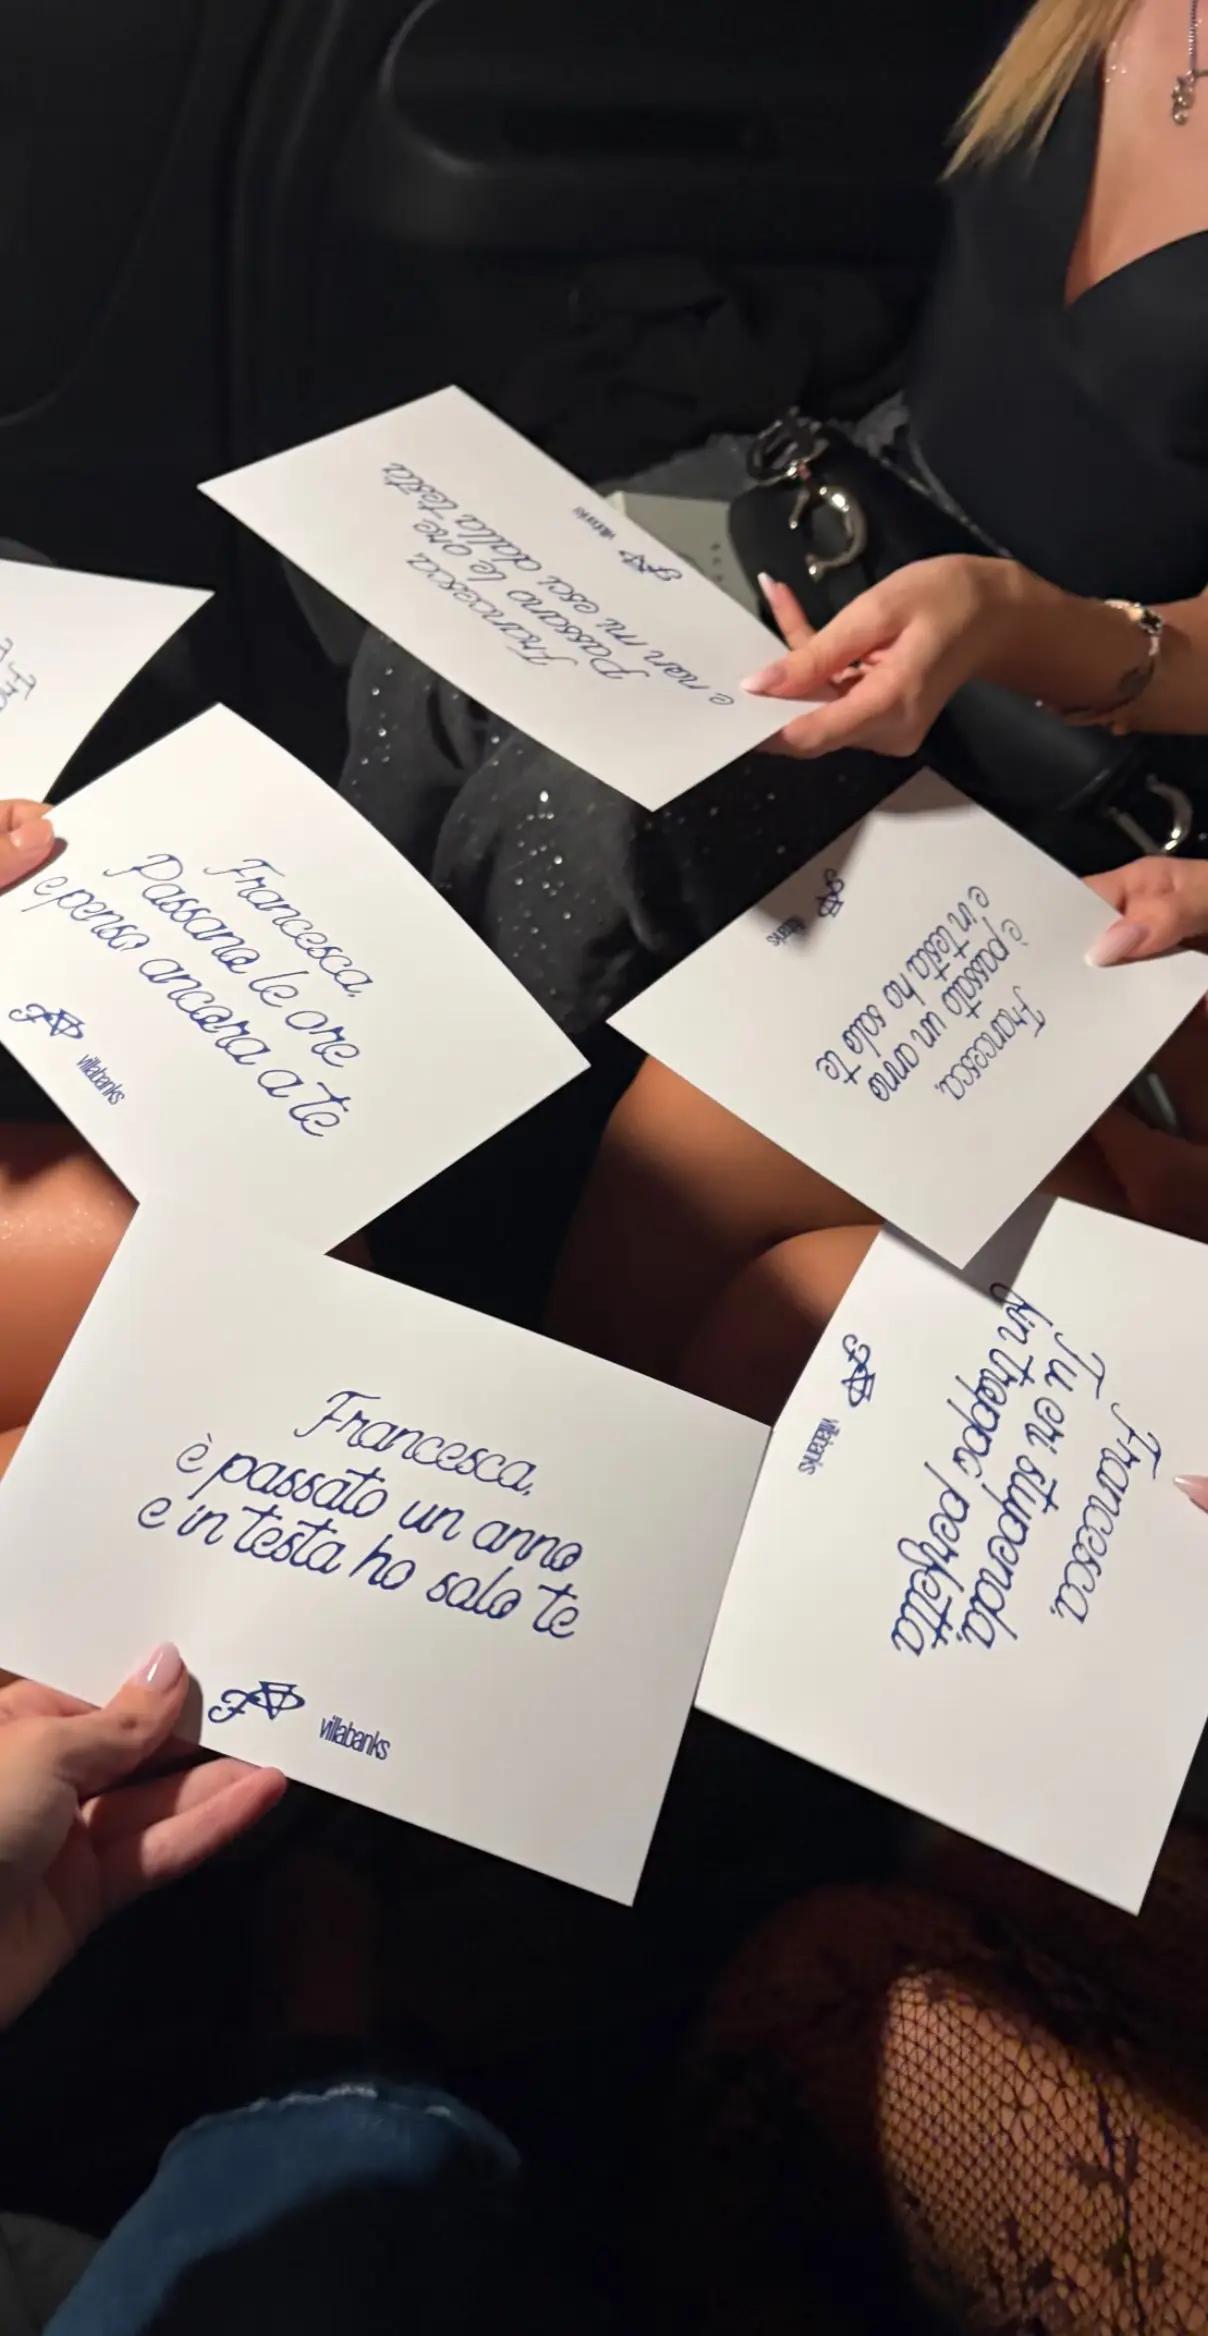 Francesca,
Passano le ore
e non mi esci dalla testa
villabanks
Francesca,
Passano le ore
e penso ancora a te
villabanks
Francesca,
è passato un anno
e in testa ho solo te
villabanks
Francesca,
è passato un anno
e in testa ho solo te
villabanks
Francesca,
Tu eri stupenda,
sin troppo perfetta
villabanks